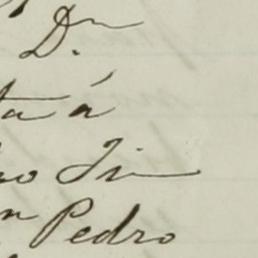 D.n
ta á
no Ji
n Pedro